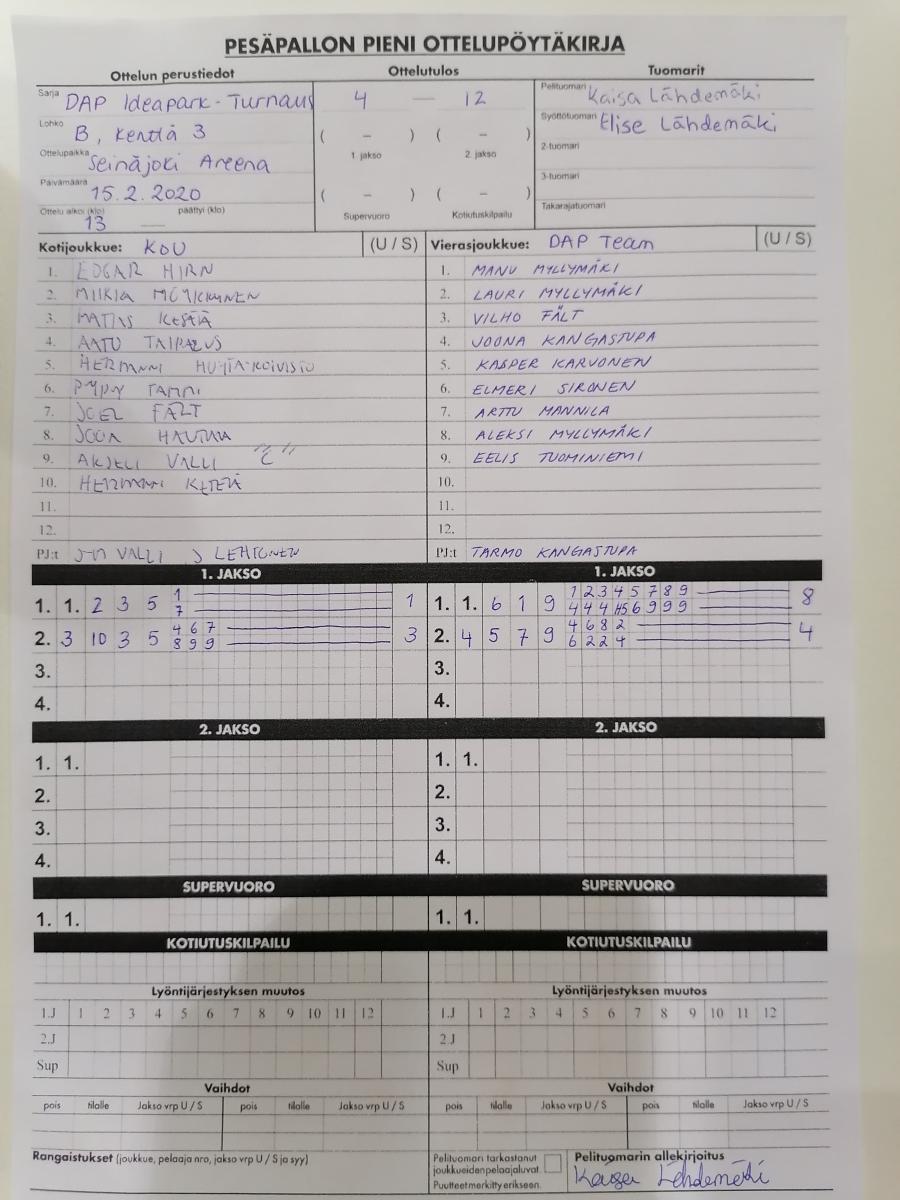 PESÄPALLON PIENI OTTELUPÖYTÄKIRJA
Ottelun perustiedot
Sarja DAP Ideapark-Turnaus
Lohko B, Kenttä 3
Ottelupaikka Seinäjoki Areena
Päivämäärä 15.2.2020
Ottelu alkoi (klo) 13 päättyi (klo) —
Ottelutulos
4 — 12
( – ) ( – )
1. jakso 2. jakso
( – ) ( – )
Supervuoro Kotiutuskilpailu
Tuomarit
Pelituomari Kaisa Lähdemäki
Syöttötuomari Elise Lähdemäki
2-tuomari
3-tuomari
Takarajatuomari
Kotijoukkue: KOU (U / S)
1. EDGAR HIRN
2. MIIKKA
3. MATIAS
4. AATU TAIPALUS
5. HERMANNI HUHTA-KOIVISTO
6. TAMMI
7. JOEL FÄLT
8. JOONA
9. AKSELI VALLI "C"
10. HERMANNI
11.
12.
PJ:t VALLI J LEHTONEN
Vierasjoukkue: DAP Team (U / S)
1. MANU MYLLYMÄKI
2. LAURI MYLLYMÄKI
3. VILHO FÄLT
4. JOONA KANGASTUPA
5. KASPER KARVONEN
6. ELMERI SIRONEN
7. ARTTU MANNILA
8. ALEKSI MYLLYMÄKI
9. EELIS TUOMINIEMI
10.
11.
12.
PJ:t TARMO KANGASTUPA
1. JAKSO
1. 1. 2 3 5 1 1
7
2. 3 10 3 5 4 6 7 3
8 9 9
3.
4.
1. JAKSO
1. 1. 6 1 9 1 2 3 4 5 7 8 9 8
4 4 4 H5 6 9 9 9
2. 4 5 7 9 4 6 8 2 4
6 2 2 4
3.
4.
2. JAKSO
1. 1.
2.
3.
4.
2. JAKSO
1. 1.
2.
3.
4.
SUPERVUORO
1. 1.
SUPERVUORO
1. 1.
KOTIUTUSKILPAILU
KOTIUTUSKILPAILU
Lyöntijärjestyksen muutos
1.J 1 2 3 4 5 6 7 8 9 10 11 12
2.J
Sup
Lyöntijärjestyksen muutos
1.J 1 2 3 4 5 6 7 8 9 10 11 12
2.J
Sup
Vaihdot
pois tilalle Jakso vrp U / S pois tilalle Jakso vrp U / S
Vaihdot
pois tilalle Jakso vrp U / S pois tilalle Jakso vrp U / S
Rangaistukset (joukkue, pelaaja nro, jakso vrp U / S ja syy)
Pelituomari tarkastanut
joukkueidenpelaajaluvat.
Puutteetmerkittyerikseen.
Pelituomarin allekirjoitus
Kaisa Lähdemäki